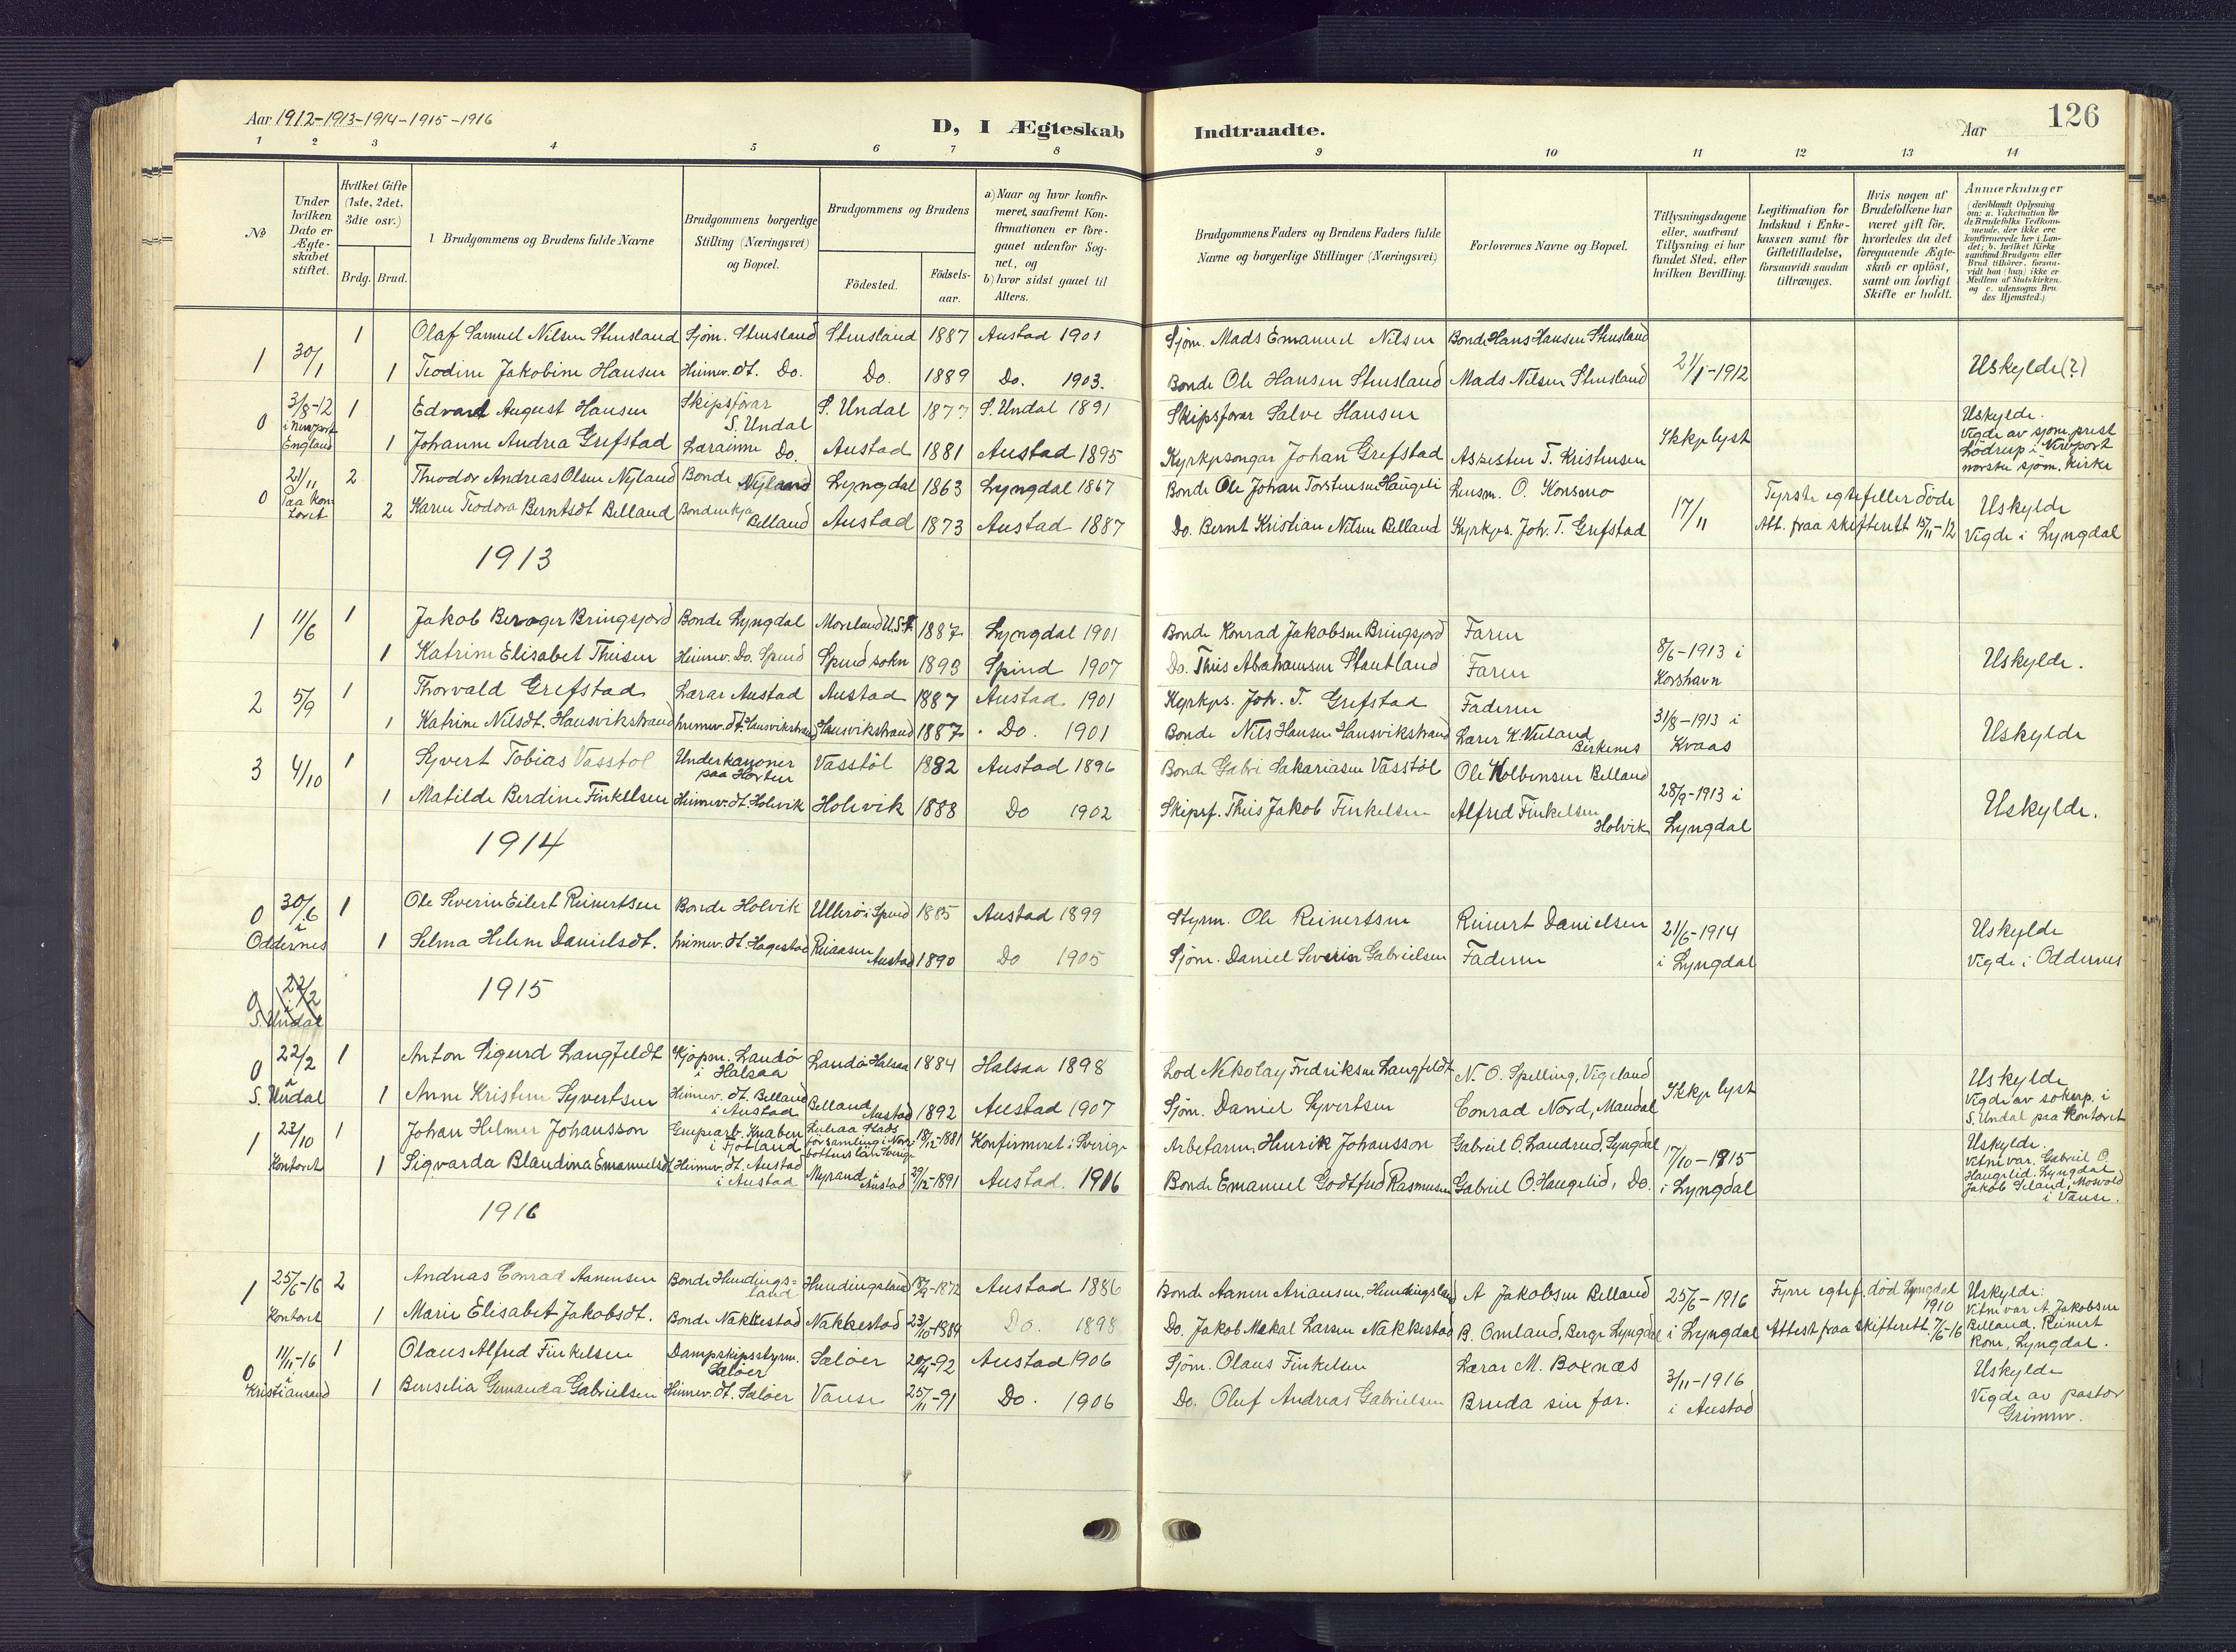 Aar 1912-1913-1914-1915-1916
D, I Ægteskab Indtraadte.
Aar 126
1 2 3 4 5 6 7 8 9 10 11 12 13 14
No
Under hvilken Dato er Ægte-skabet stiftet.
Hvilket Gifte (1ste, 2det, 3die osv.)
Brdg. Brud.
Brudgommens og Brudens fulde Navne
Brudgommens borgerlige Stilling (Næringsvei) og Bopæl.
Brudgommens og Brudens
Födested. Födsels-aar.
a) Naar og hvor konfir-meret, saafremt Kon-firmationen er fore-gaaet udenfor Sog-net, og
b) hvor sidst gaaet til Alters.
Brudgommens Faders og Brudens Faders fulde Navne og borgerlige Stillinger (Næringsvei)
Forlovernes Navne og Bopæl.
Tillysningsdagene eller, saafremt Tillysning ei har fundet Sted, efter hvilken Bevilling.
Legitimation for Indskud i Enke-kassen samt for Giftetilladelse, forsaavidt saadan tiltrænges.
Hvis nogen af Brudefolkene har været gift för, hvorledes da det foregaaende Ægte-skab er oplöst, samt om lovligt Skifte er holdt.
Anmærkninger (deriblandt Oplysning om: a. Vakcination for de Brudefolks Vedkom-mende, der ikke ere konfirmerede her i Lan-det; b. hvilket Kirke-samfund Brudgom eller Brud tilhörer, forsaa-vidt han (hun) ikke er Medlem af Statskirken, og c. udensogns Bru-des Hjemsted.)
1 30/1 1 Olaf Samuel Nilsen Stensland Sjöm. Stensland Stensland 1887 Austad 1901 Sjöm. Mads Emanuel Nilsen Bonde Hans Hansen Stensland 21/1-1912 Uskylde(?)
1 Teodine Jakobine Hansen Heimev. dt. Do. Do. 1889 Do. 1903. Bonde Ole Hansen Stensland Mads Nilsen Stensland
0 3/8-12 i Newport England 1 Edvard August Hansen Skipsförar S. Undal S. Undal 1877 S. Undal 1891 Skipsförar Salve Hansen Ikkje lyst Uskylde. Vigde av sjöm.prest Lödrup i Newport norske sjöm. kirke
1 Johanne Andrea Grefstad Lærarinne Do. Austad 1881 Austad 1895 Kyrkjesongar Johan Grefstad Asbesten T. Kristensen
0 21/11 paa Kon-toret 2 Theodor Andreas Olsen Nyland Bonde Nyland Lyngdal 1863 Lyngdal 1867 Bonde Ole Johan Torstensen Haugeli Lensm. O. Konsmo 17/11 Fyrste egtefeller döde Uskylde
2 Karen Teodora Berntsdt Belland Bondeenkja Belland Austad 1873 Austad 1887 Do. Bernt Kristian Nilsen Belland Kyrkjes. Joh. T. Grefstad Att. fraa skifterett 15/11-12 Vigde i Lyngdal
1913
1 11/6 1 Jakob Berager Bringsjord Bonde Lyngdal Moreland U.S.A. 1887 Lyngdal 1901 Bonde Konrad Jakobsen Bringsjord Faren 8/6-1913 i Korshavn Uskylde.
1 Katrine Elisabet Theisen Heimev. Do. Spind Spind sokn 1893 Spind 1907 Do. Theis Abrahamsen Stautland Faren
2 5/9 1 Thorvald Grefstad Lærar Austad Austad 1887 Austad 1901 Kyrkjes. Joh. T. Grefstad Faderen 31/8-1913 i Kvaas Uskylde
1 Katrine Nilsdt. Hausvikstrand heimev. dt. Hausvikstrand Hausvikstrand 1887 Do. 1901 Bonde Nils Hansen Hausvikstrand Lærer K. Vieland Birkenes
3 4/10 1 Syvert Tobias Vasstöl Underkanoner paa Horten Vasstöl 1882 Austad 1896 Bonde Gabri Sakariasen Vasstöl Ole Kolbensen Belland 28/9-1913 i Lyngdal Uskylde.
1 Matilde Berdine Finkelsen Heimev. dt. Holevik Holevik 1888 Do 1902 Skipsf. Theis Jakob Finkelsen Alfred Finkelsen Holevik
1914
0 30/6 i Oddernes 1 Ole Severin Eilert Reinertsen Bonde Holevik Ullerö i Spind 1885 Austad 1899 Styrm. Ole Reinertsen Reinert Danielsen 21/6-1914 i Lyngdal Uskylde Vigde i Oddernes
1 Selma Helene Danielsdt. heimev. dt. Hagestad Reiaasen Austad 1890 Do 1905 Sjöm. Daniel Severin Gabrielsen Faderen
0 22/2 i S. Undal
1915
0 22/2 i S. Undal 1 Anton Sigurd Langfeldt Kjöpm. Landö i Halsaa Landö Halsaa 1884 Halsaa 1898 Lod Nikolay Fredriksen Langfeldt N. O. Spelling, Vigeland Ikkje lyst Uskylde Vigde av sokenp. i S. Undal paa Kontoret
1 Anne Kristine Syvertsen Heimev. dt. Belland i Austad Belland Austad 1892 Austad 1907 Sjöm. Daniel Syvertsen Conrad Nord, Mandal
1 23/10 Kontoret 1 Johan Hilmer Johansson Gruvearb. Knaben i Fjotland Luleaa Stads församling i Norr-bottens län Sverige 18/12-1881 Konfirmeret i Sverige Arbetaren Henrik Johansson Gabriel O. Landrud, Lyngdal 17/10-1915 i Lyngdal Uskylde. Vitne var Gabriel O. Haugelid, Lyngdal Jakob Eiland, Mosvold i Vanse.
1 Sigvarda Blandina Emanuelsdt Heimev. dt. Austad i Austad Myrand i Austad 29/12-1891 Austad. 1906 Bonde Emanuel Godtfred Rasmusen Gabriel O. Haugelid, Do.
1916
1 25/6-16 Kontoret 2 Andreas Conrad Aanensen Bonde Hundings-land Hundingsland 18/9-1872 Austad 1886 Bonde Aanen Ariansen, Hundingsland A Jakobsen Belland 25/6-1916 i Lyngdal Fyrre egtef. död Lyngdal 1910 Uskylde. Vitne var A. Jakobsen Belland. Reinert Rom, Lyngdal.
1 Marie Elisabet Jakobsdt. Bonde Nakkestad Nakkestad 23/10-1884 Do. 1898 Do. Jakob Mekal Larsen Nakkestad B. Omland, Berge Lyngdal Attest fraa skifterett 7/6-16
0 11/11-16 i Kristiansand 1 Olaus Alfred Finkelsen Dampskipsstyrm. Salöer Salöer 20/4-92 Austad 1906 Sjöm. Olaus Finkelsen Lærar M. Boxnæs 3/11-1916 i Austad Uskylde Vigde av pastor Grimnv.
1 Benselia Gernanda Gabrielsen Heimev. dt. Salöer Vanse 25/11-91 Do. 1906 Do. Oluf Andreas Gabrielsen Bruda sin far.